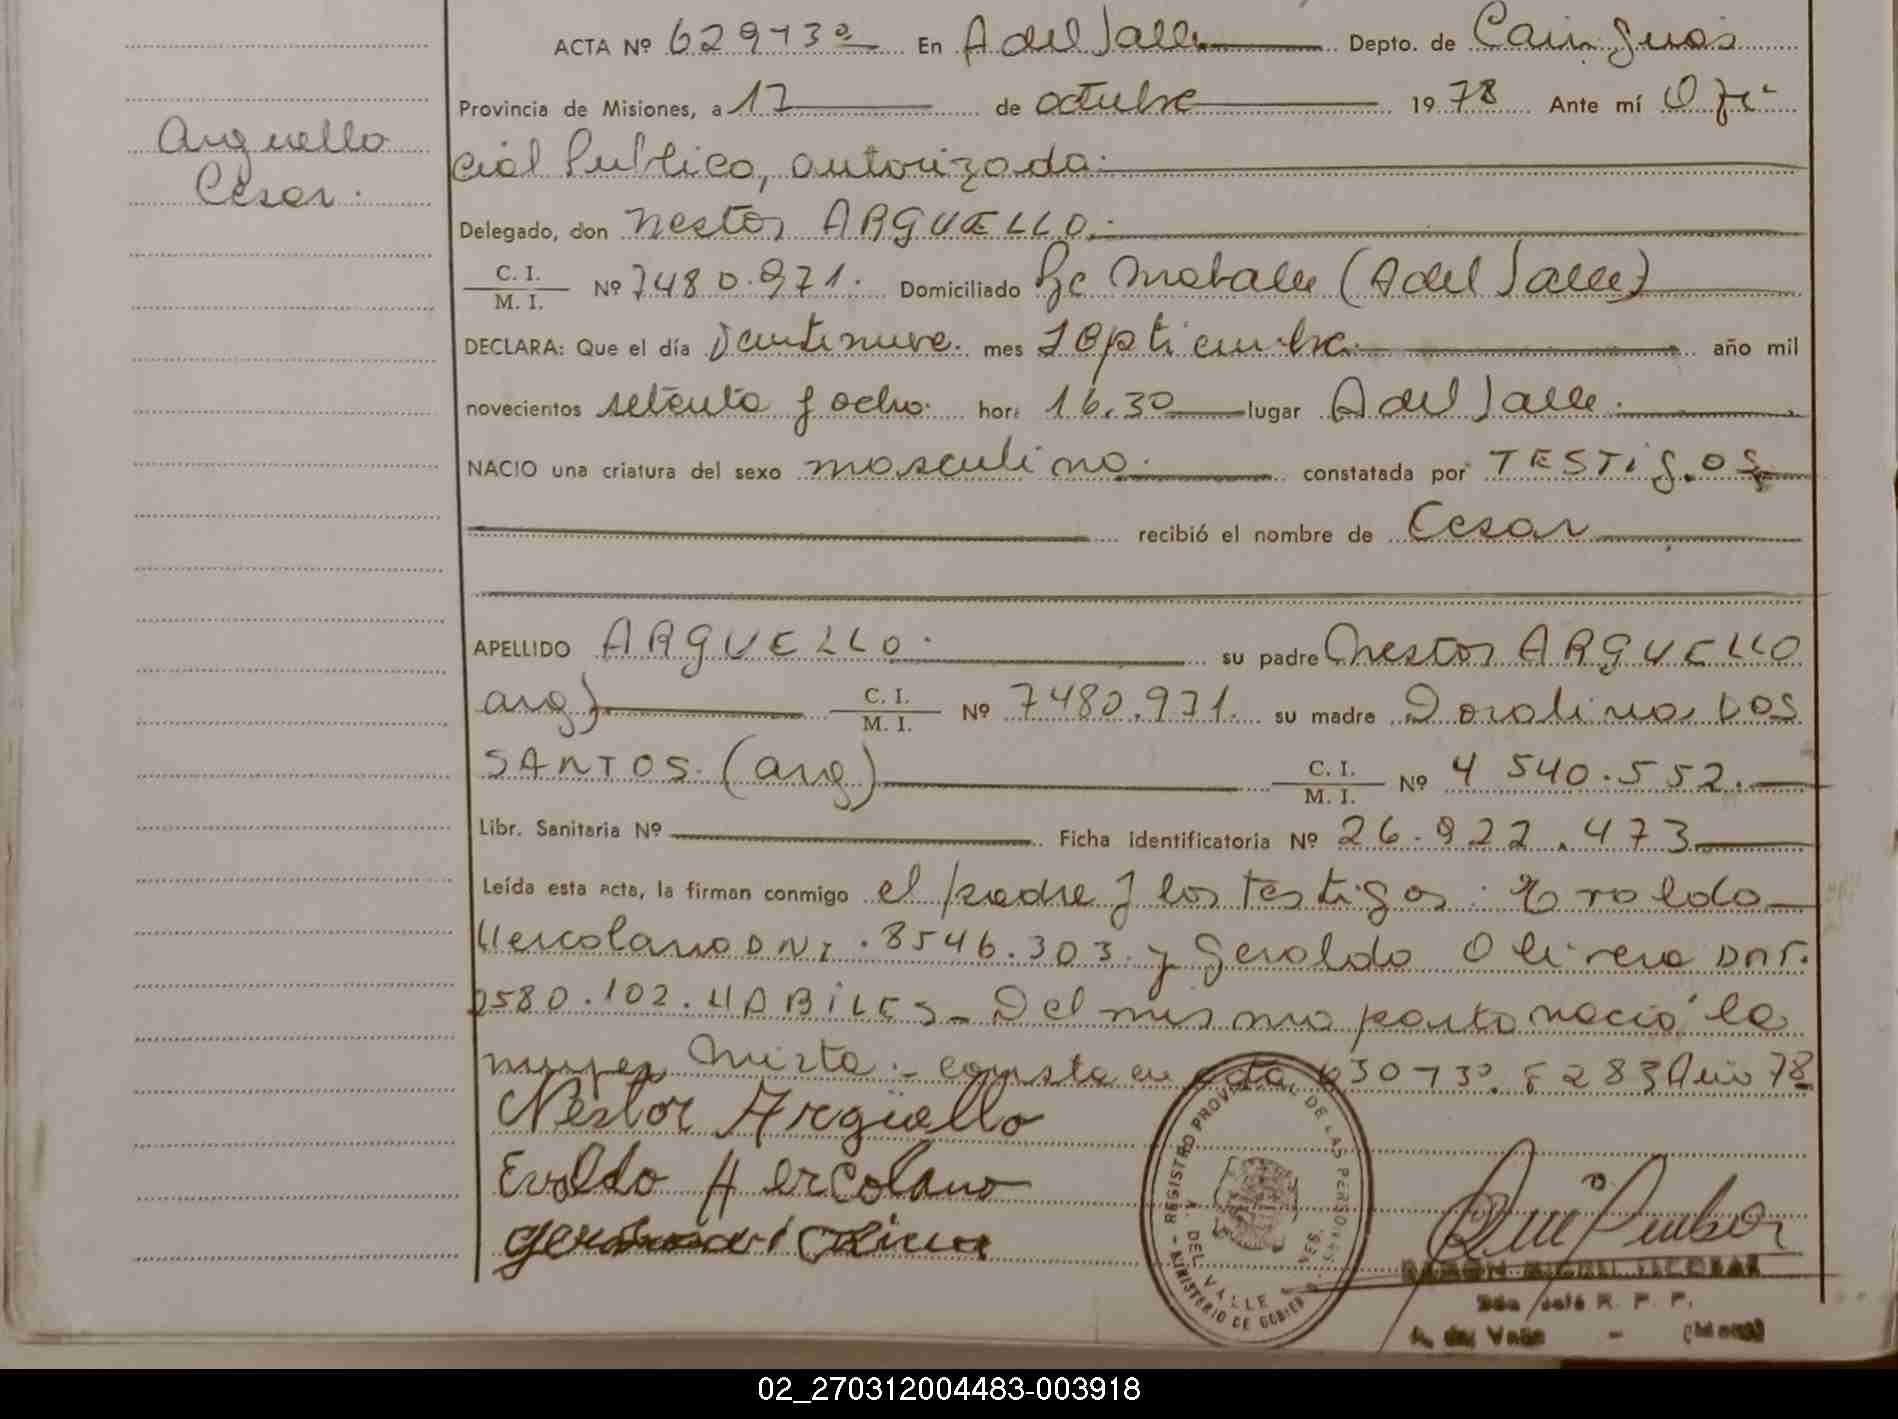 ACTA Nº 629-T3º En A del Valle Depto. de Cainguás
Provincia de Misiones, a 17 de octubre 1978 Ante mí Ofi-
Arguello
Cesar.
cial Publico, autorizada.
Delegado, don Nestor ARGUELLO.
C. I.
M. I.
Nº 7480.971. Domiciliado Pje Moballe (A del Valle)
DECLARA: Que el día Veintinueve. mes Septiembre año mil
novecientos setenta y ocho. hora 16.30 lugar A del Valle.
NACIO una criatura del sexo masculino. constatada por TESTigos
recibió el nombre de Cesar
APELLIDO ARGUELLO. su padre Nestor ARGUELLO
arg) C. I. M. I. Nº 7480.971. su madre Doralina DOS
SANTOS. (arg) C. I. M. I. Nº 4 540.552.
Libr. Sanitaria Nº Ficha identificatoria Nº 26.922.473
Leída esta acta, la firman conmigo el padre y los testigos: Evaldo
Hercolano DNI. 8546.303. y Geraldo Olivera DNI.
580.102. HABILES_ Del mismo parto nació la
mujer Mirta.- consta en acta 630-T3º. F 283 Año 78
Néstor Argüello
Evaldo Hercolano
REGISTRO PROVINCIAL DE LAS PERSONAS
MINISTERIO DE GOBIERNO
A. DEL VALLE
R. P. P.
A. del Valle - (Mnes)
02_270312004483-003918